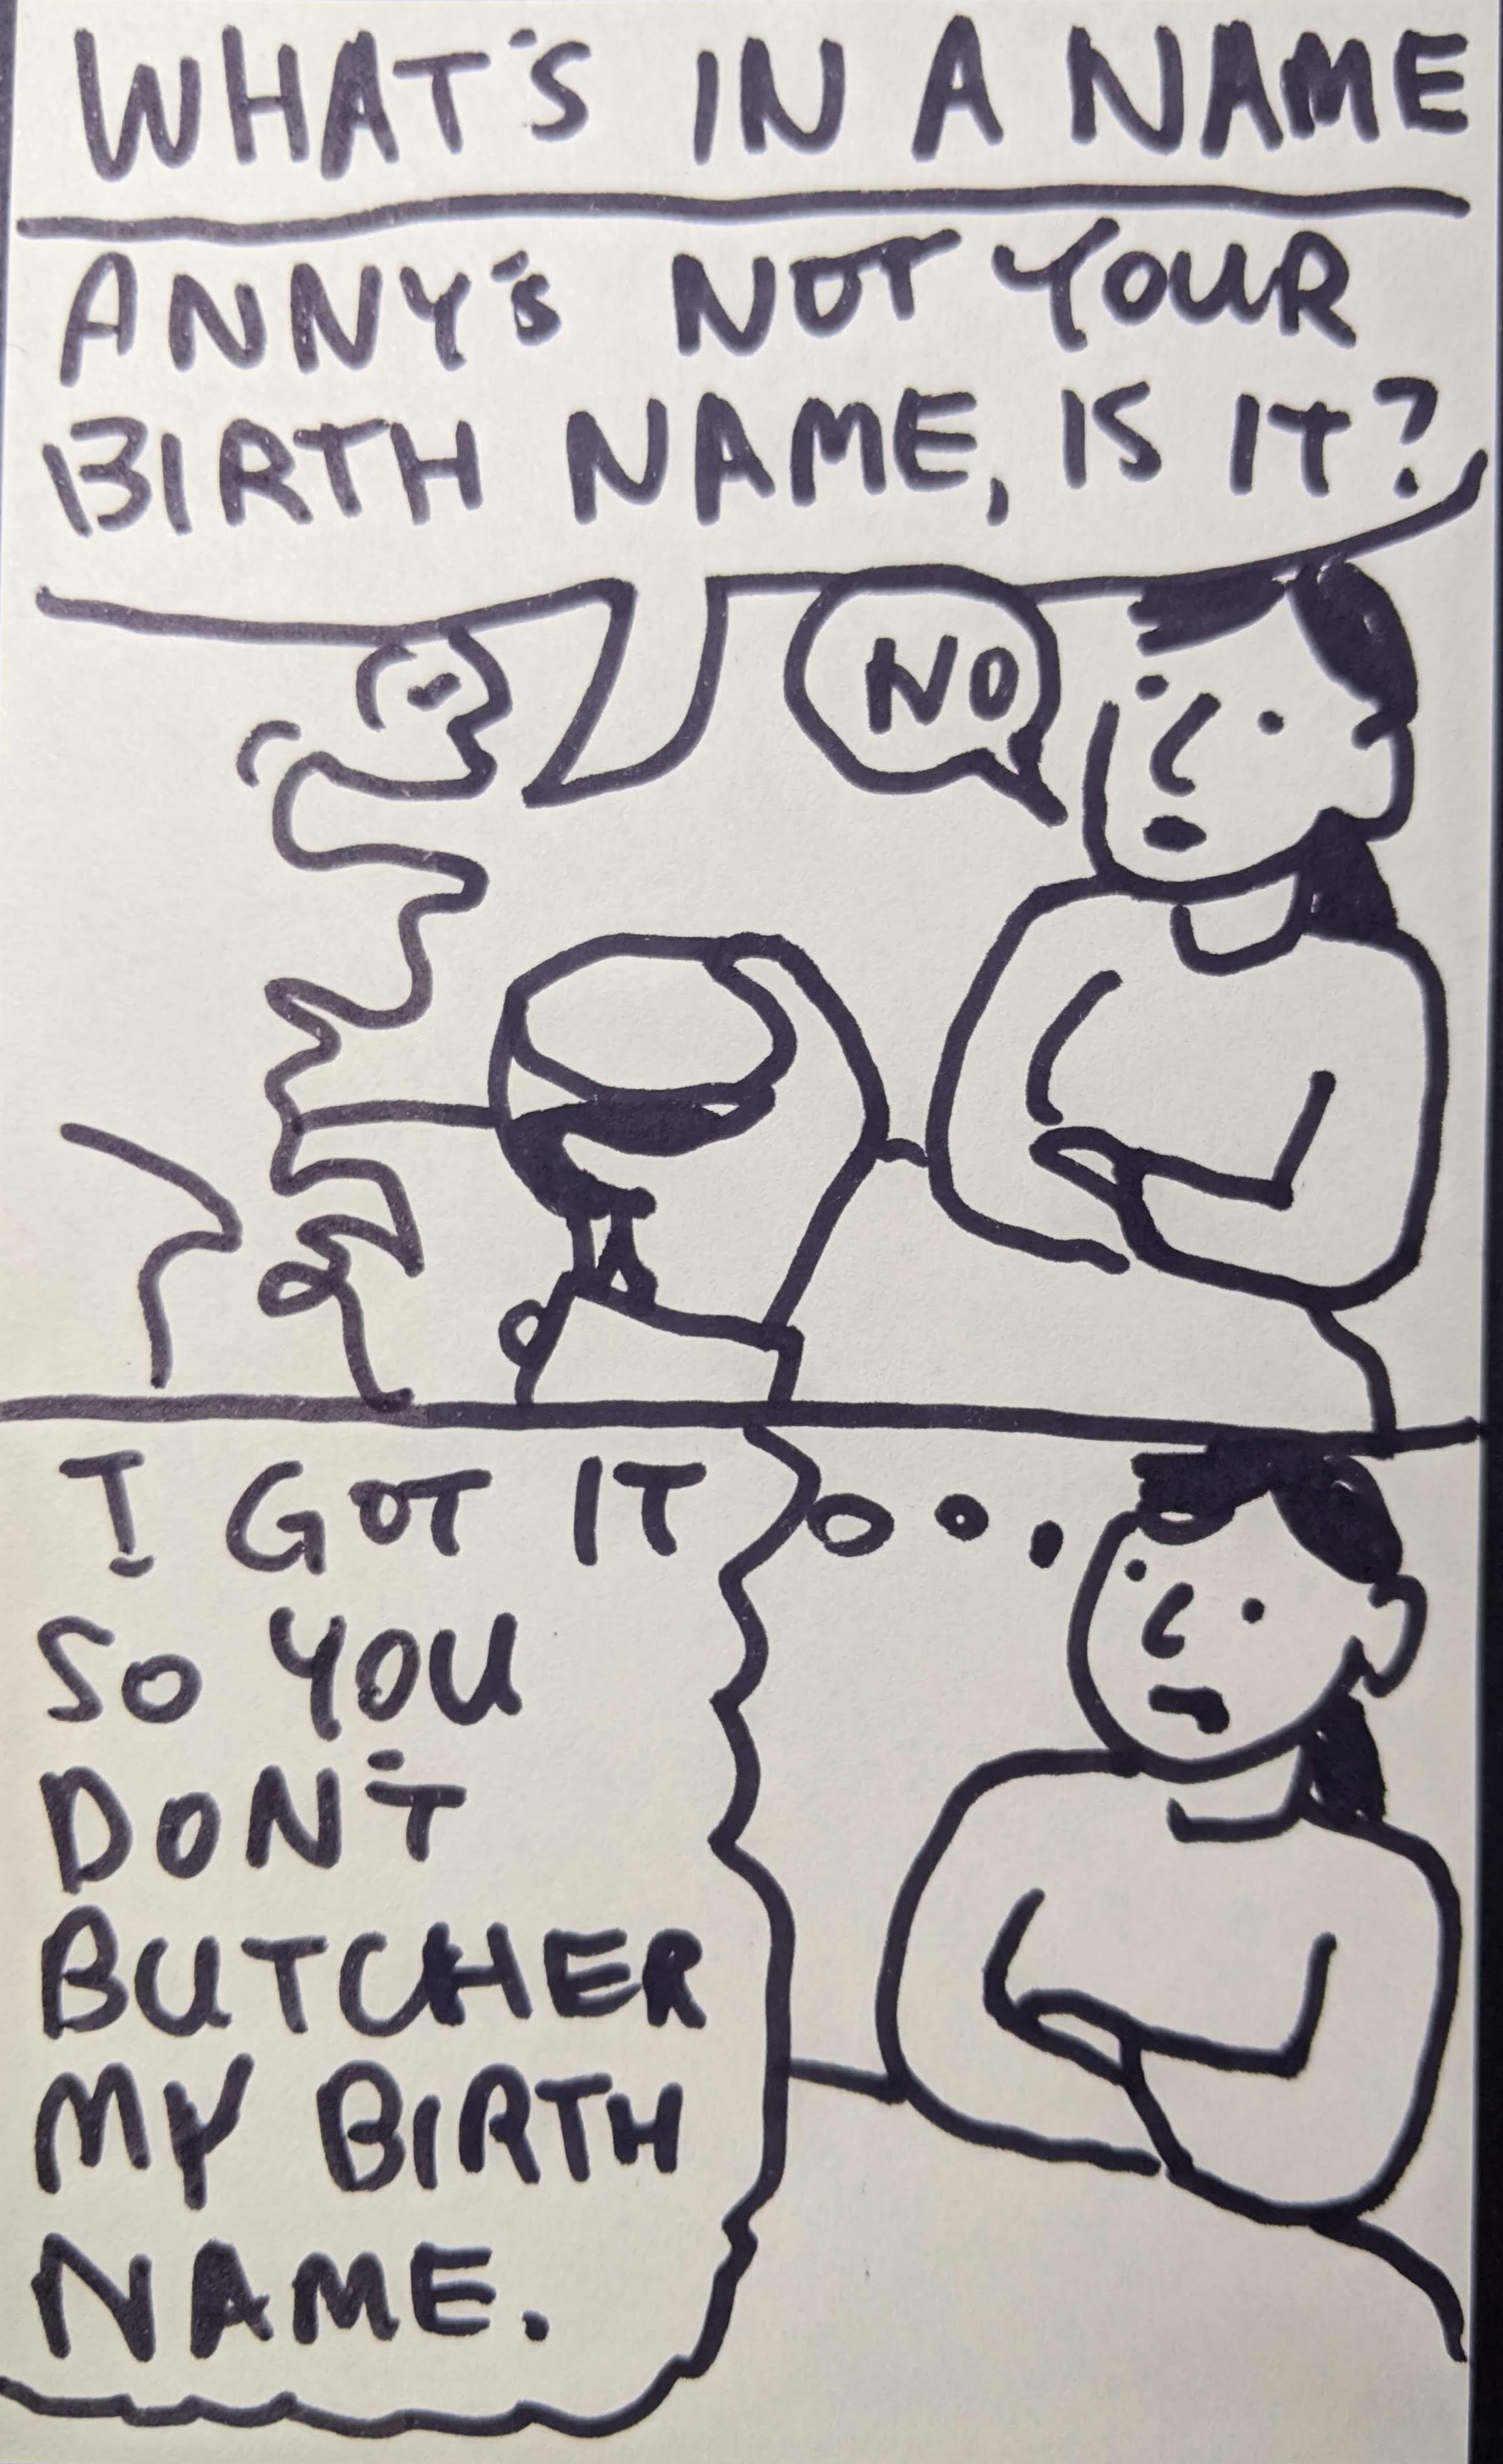 WHAT'S IN A NAME
ANNY'S NOT YOUR
BIRTH NAME, IS IT?
NO
I GOT IT
SO YOU
DON'T
BUTCHER
MY BIRTH
NAME.